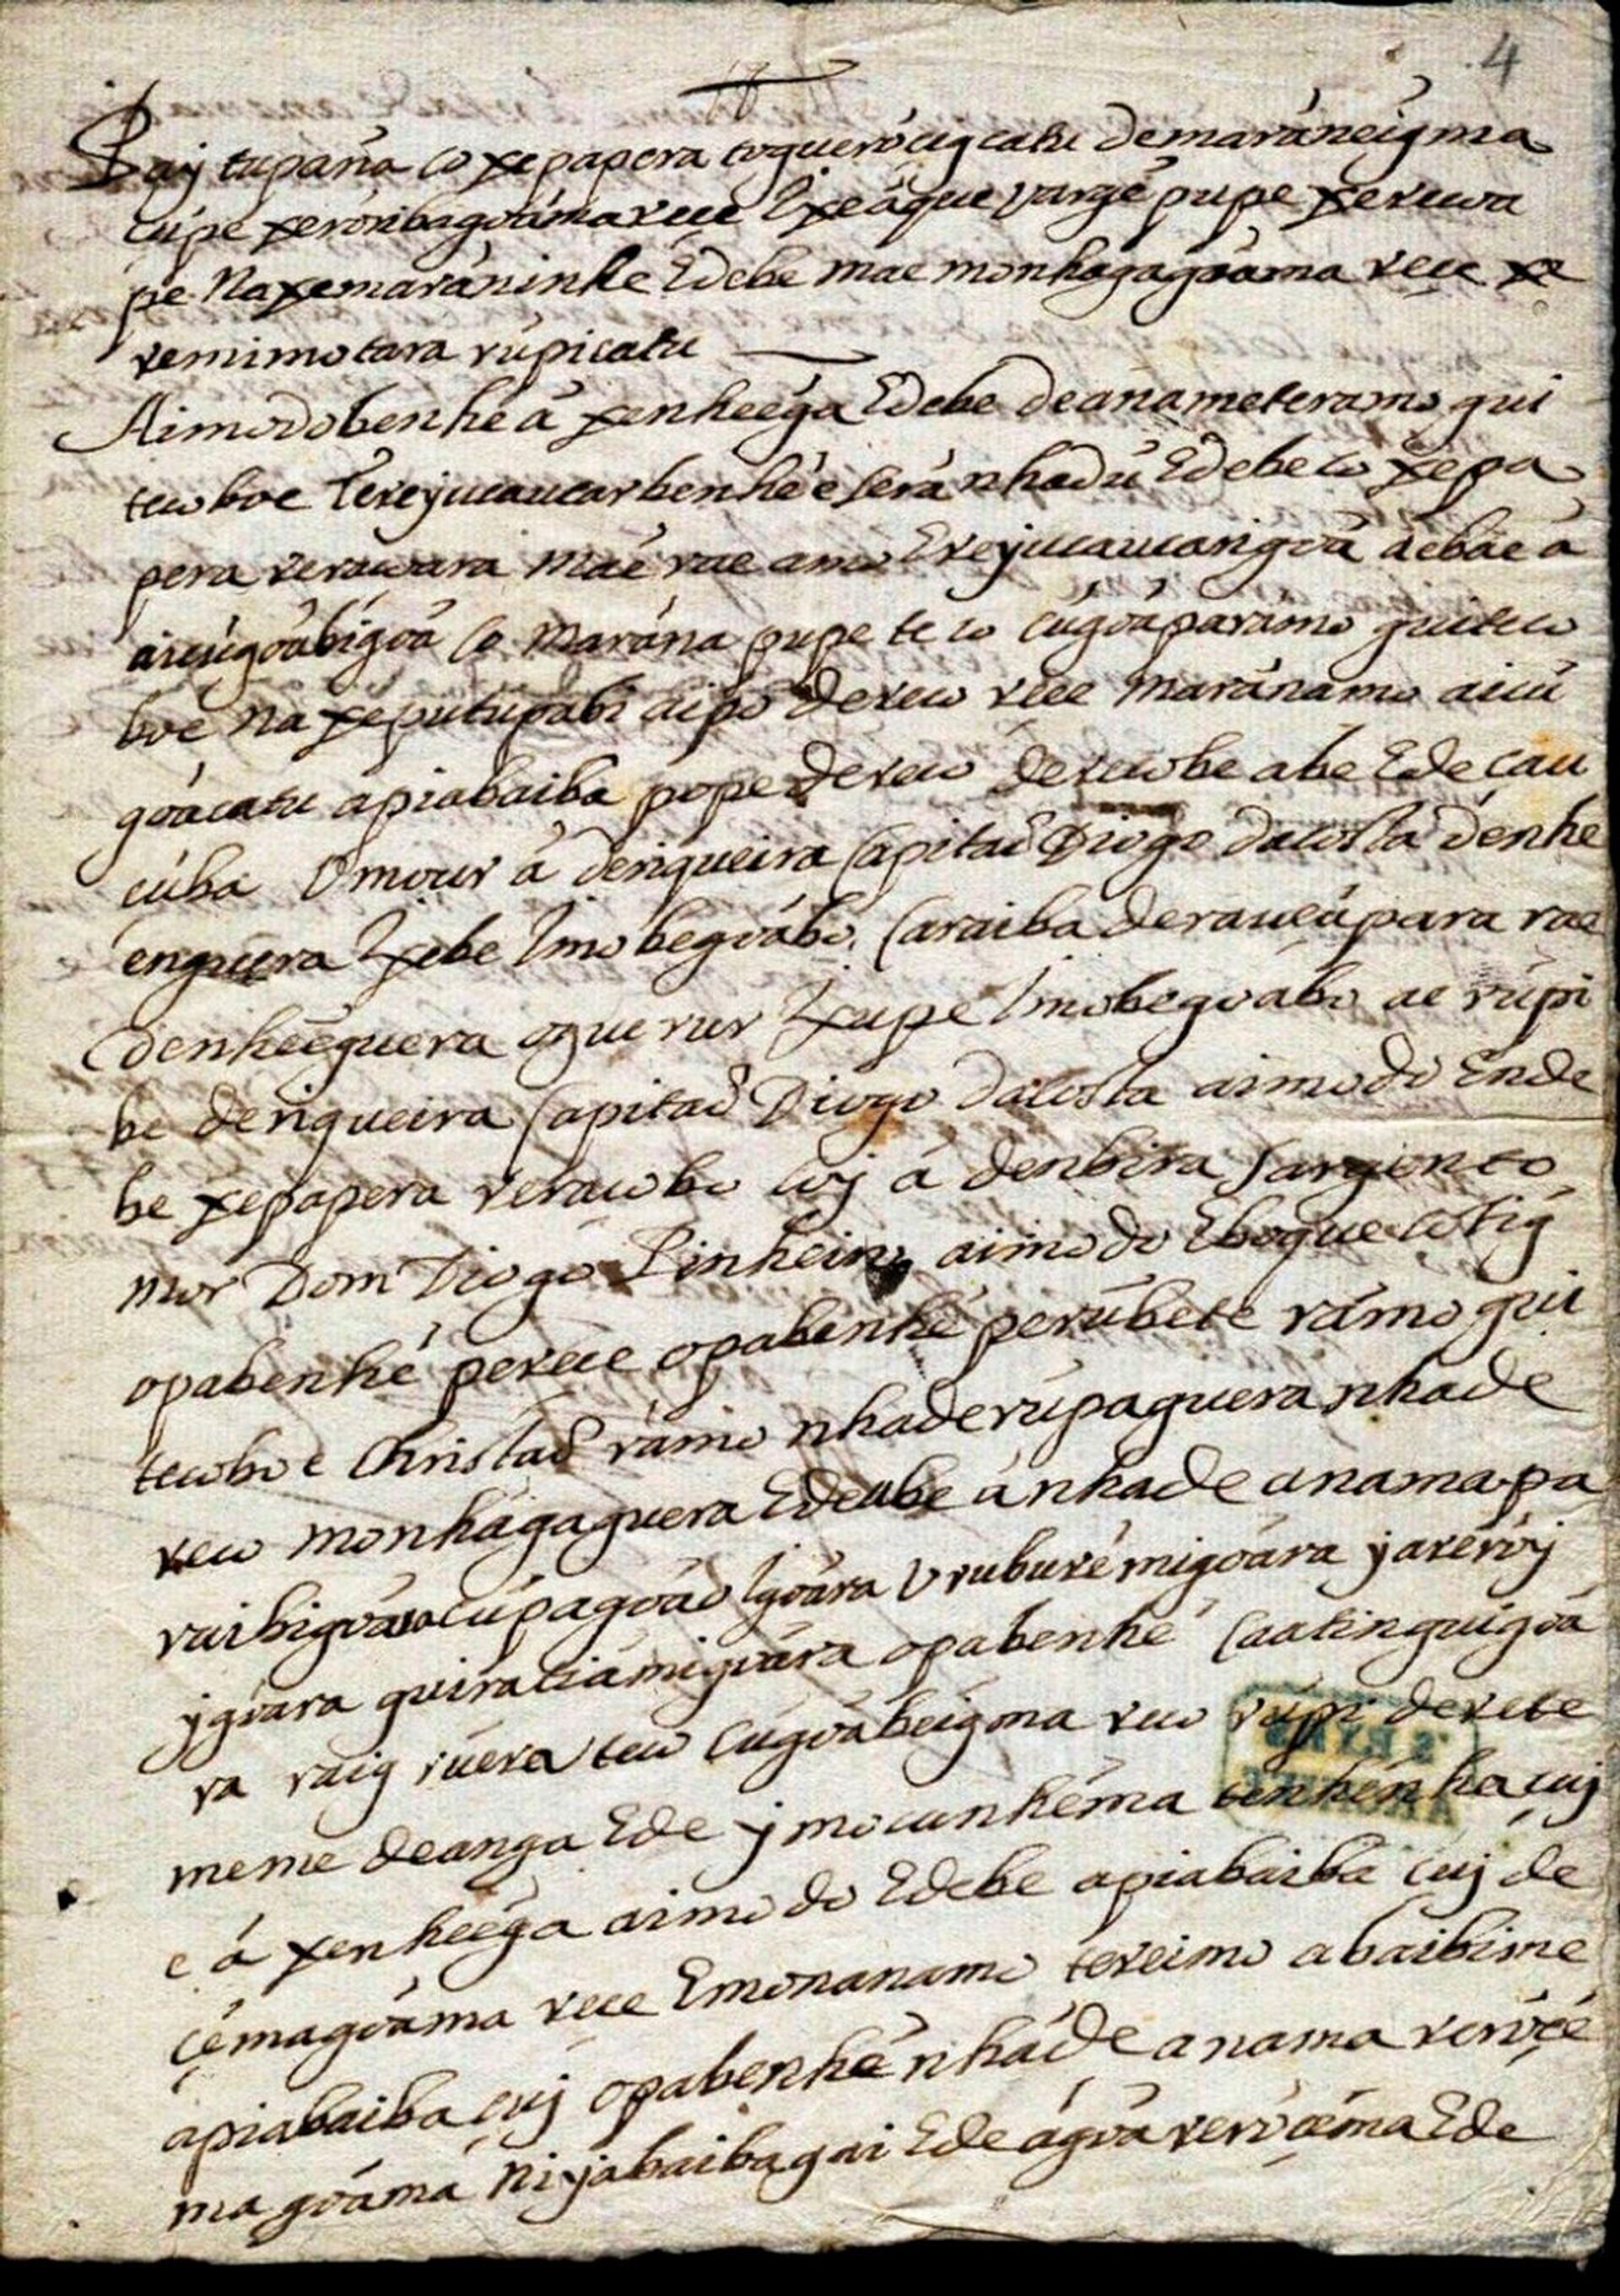 4
Pay tupána co xe papera togueróçig catu demaráneigma
çúpe xeroribagoáma rece Ixeáque vargẽ pupe xerecoa
pe Naxemaráninhe Edebe mae monhágagoáma rece xe
remimotara rúpicatu
Aimodobenhé á xenheéga Edebe deanameteramo qui
tecoboe Terejucaucarbenhé e Será nhadú Edebe co xepa
pera rerawara mae rae amo Erejucaucarigoã aebae á
aicúgoábigoã Co Marána pupe teco cúgoáparámo guiteco
boe Na xeputupabi aipó dereco rece Maránamo aicú
goácatu apiabaiba pope dereco derecobe abe Ede cau
cúba Omour á deriqueira Capitaõ Diogo dacosta denhe
enguera Ixebe Imobegoábo. Caraiba
denheéguera oguerur Ixupe Imobegoábo ae rúpi
be deriqueira Capitaõ Diogo dacosta aimodo Ende
be xepapera reracobo coj á denbira Sargento
mor Dom Diogo Pinheiro aimodo Eboque cotig
opabenhé perece opabenhé perúbete rámo gui
tecoboe Christaõ rámo nhaderúpaguera nhade
reco monhágaguera Edeabe ánhade anama pa
raibigoára cúpagoáo Igoára Vruburémigoára jareroj
ygoára guiratiámigoára opabenhé Caatinguigoá
ra raig júera teco cúgoábeigma reco rúpi derete
meme deanga Ede ymocanhéma tenhénhe cuj
e á xenheéga aimodo Edebe apiabaiba cuj de
çémagoáma rece Emonanamo tereimo abaibime
apiabaiba çuj opabenhé nháde anama reroçé
magoáma Nijabaibagai Ede ágoá reroçéma Ede